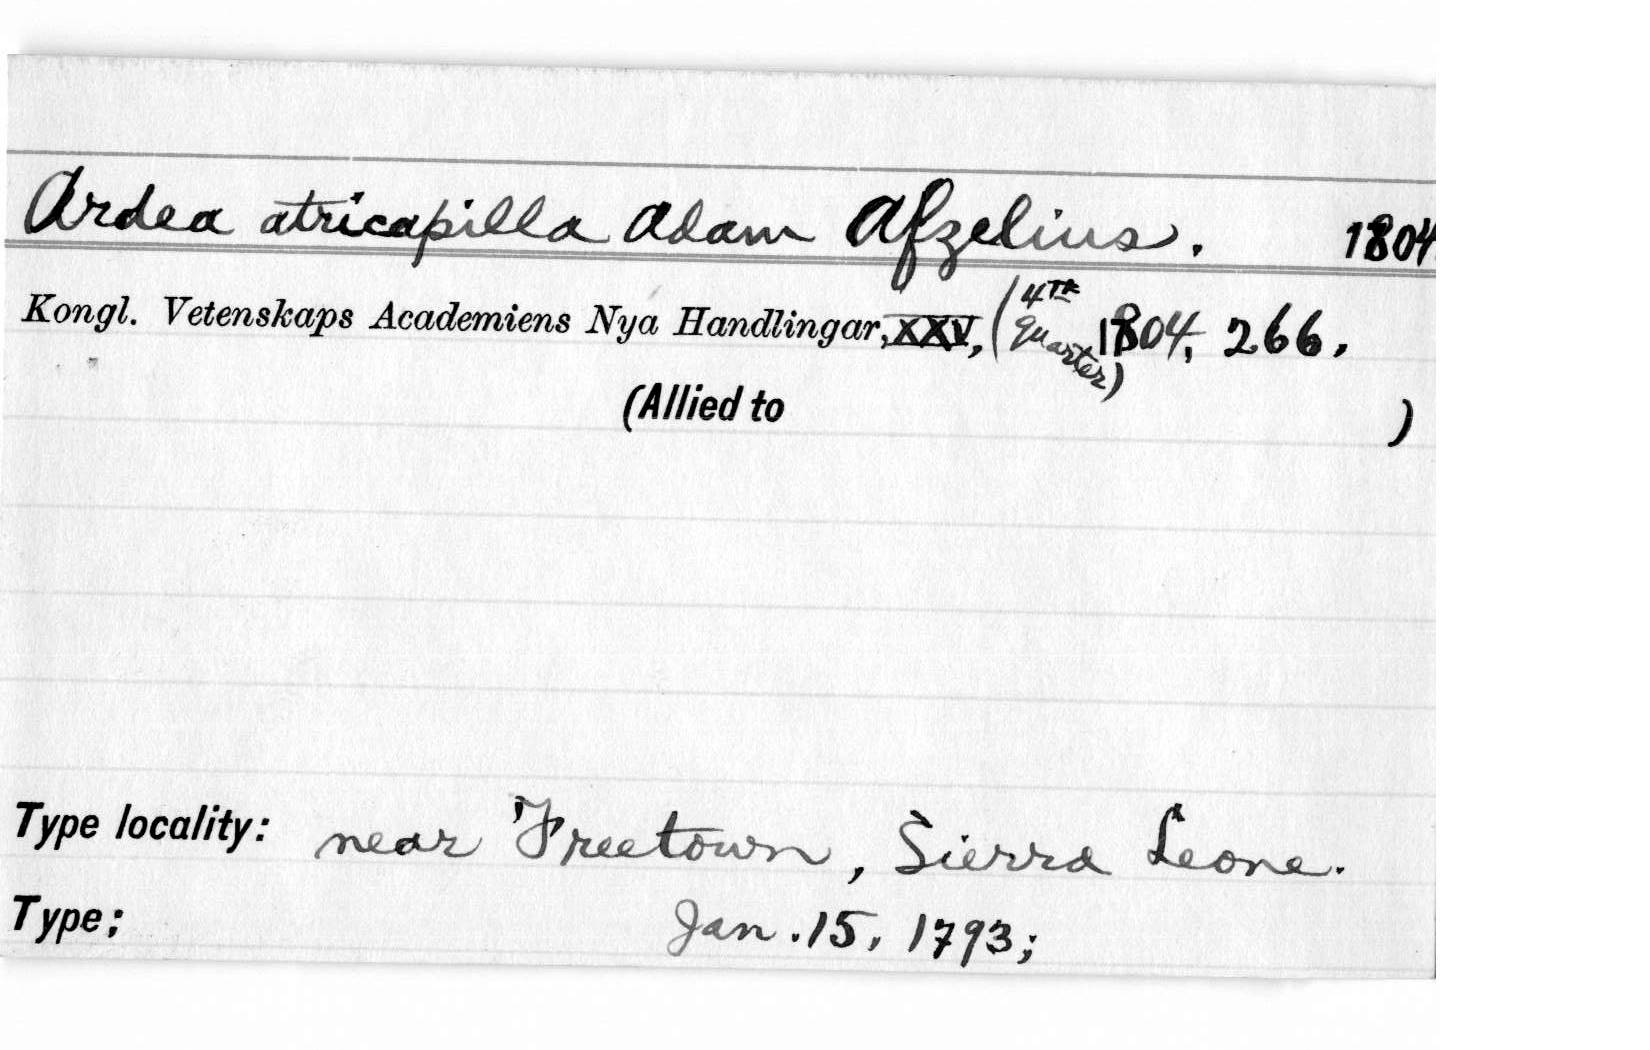 Ardea atricapilla Adam Afzelius. 1804
Kongl. Vetenskaps Academiens Nya Handlingar, XXV, (4TH Quarter) 1804, 266.
(Allied to )
Type locality: near Freetown, Sierra Leone.
Type: Jan. 15, 1793;